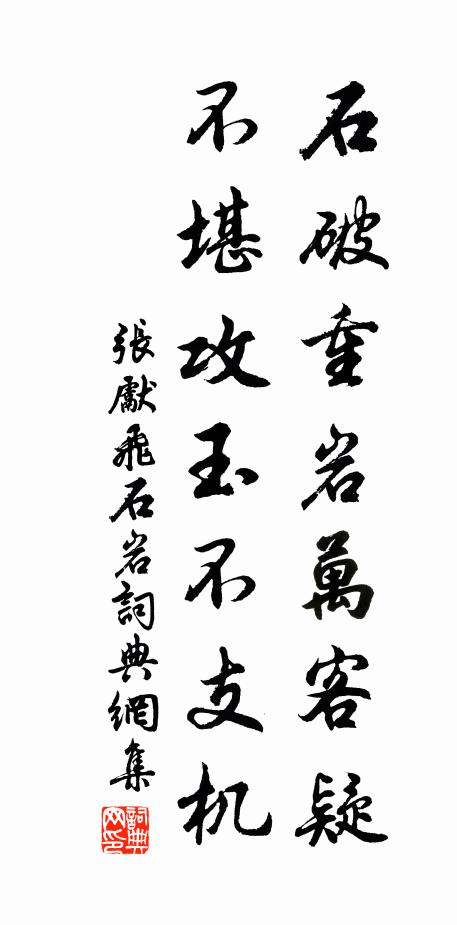 石破重岩萬客疑
不堪攻玉不支机
張獻飛石岩詞典網集
詞典網印